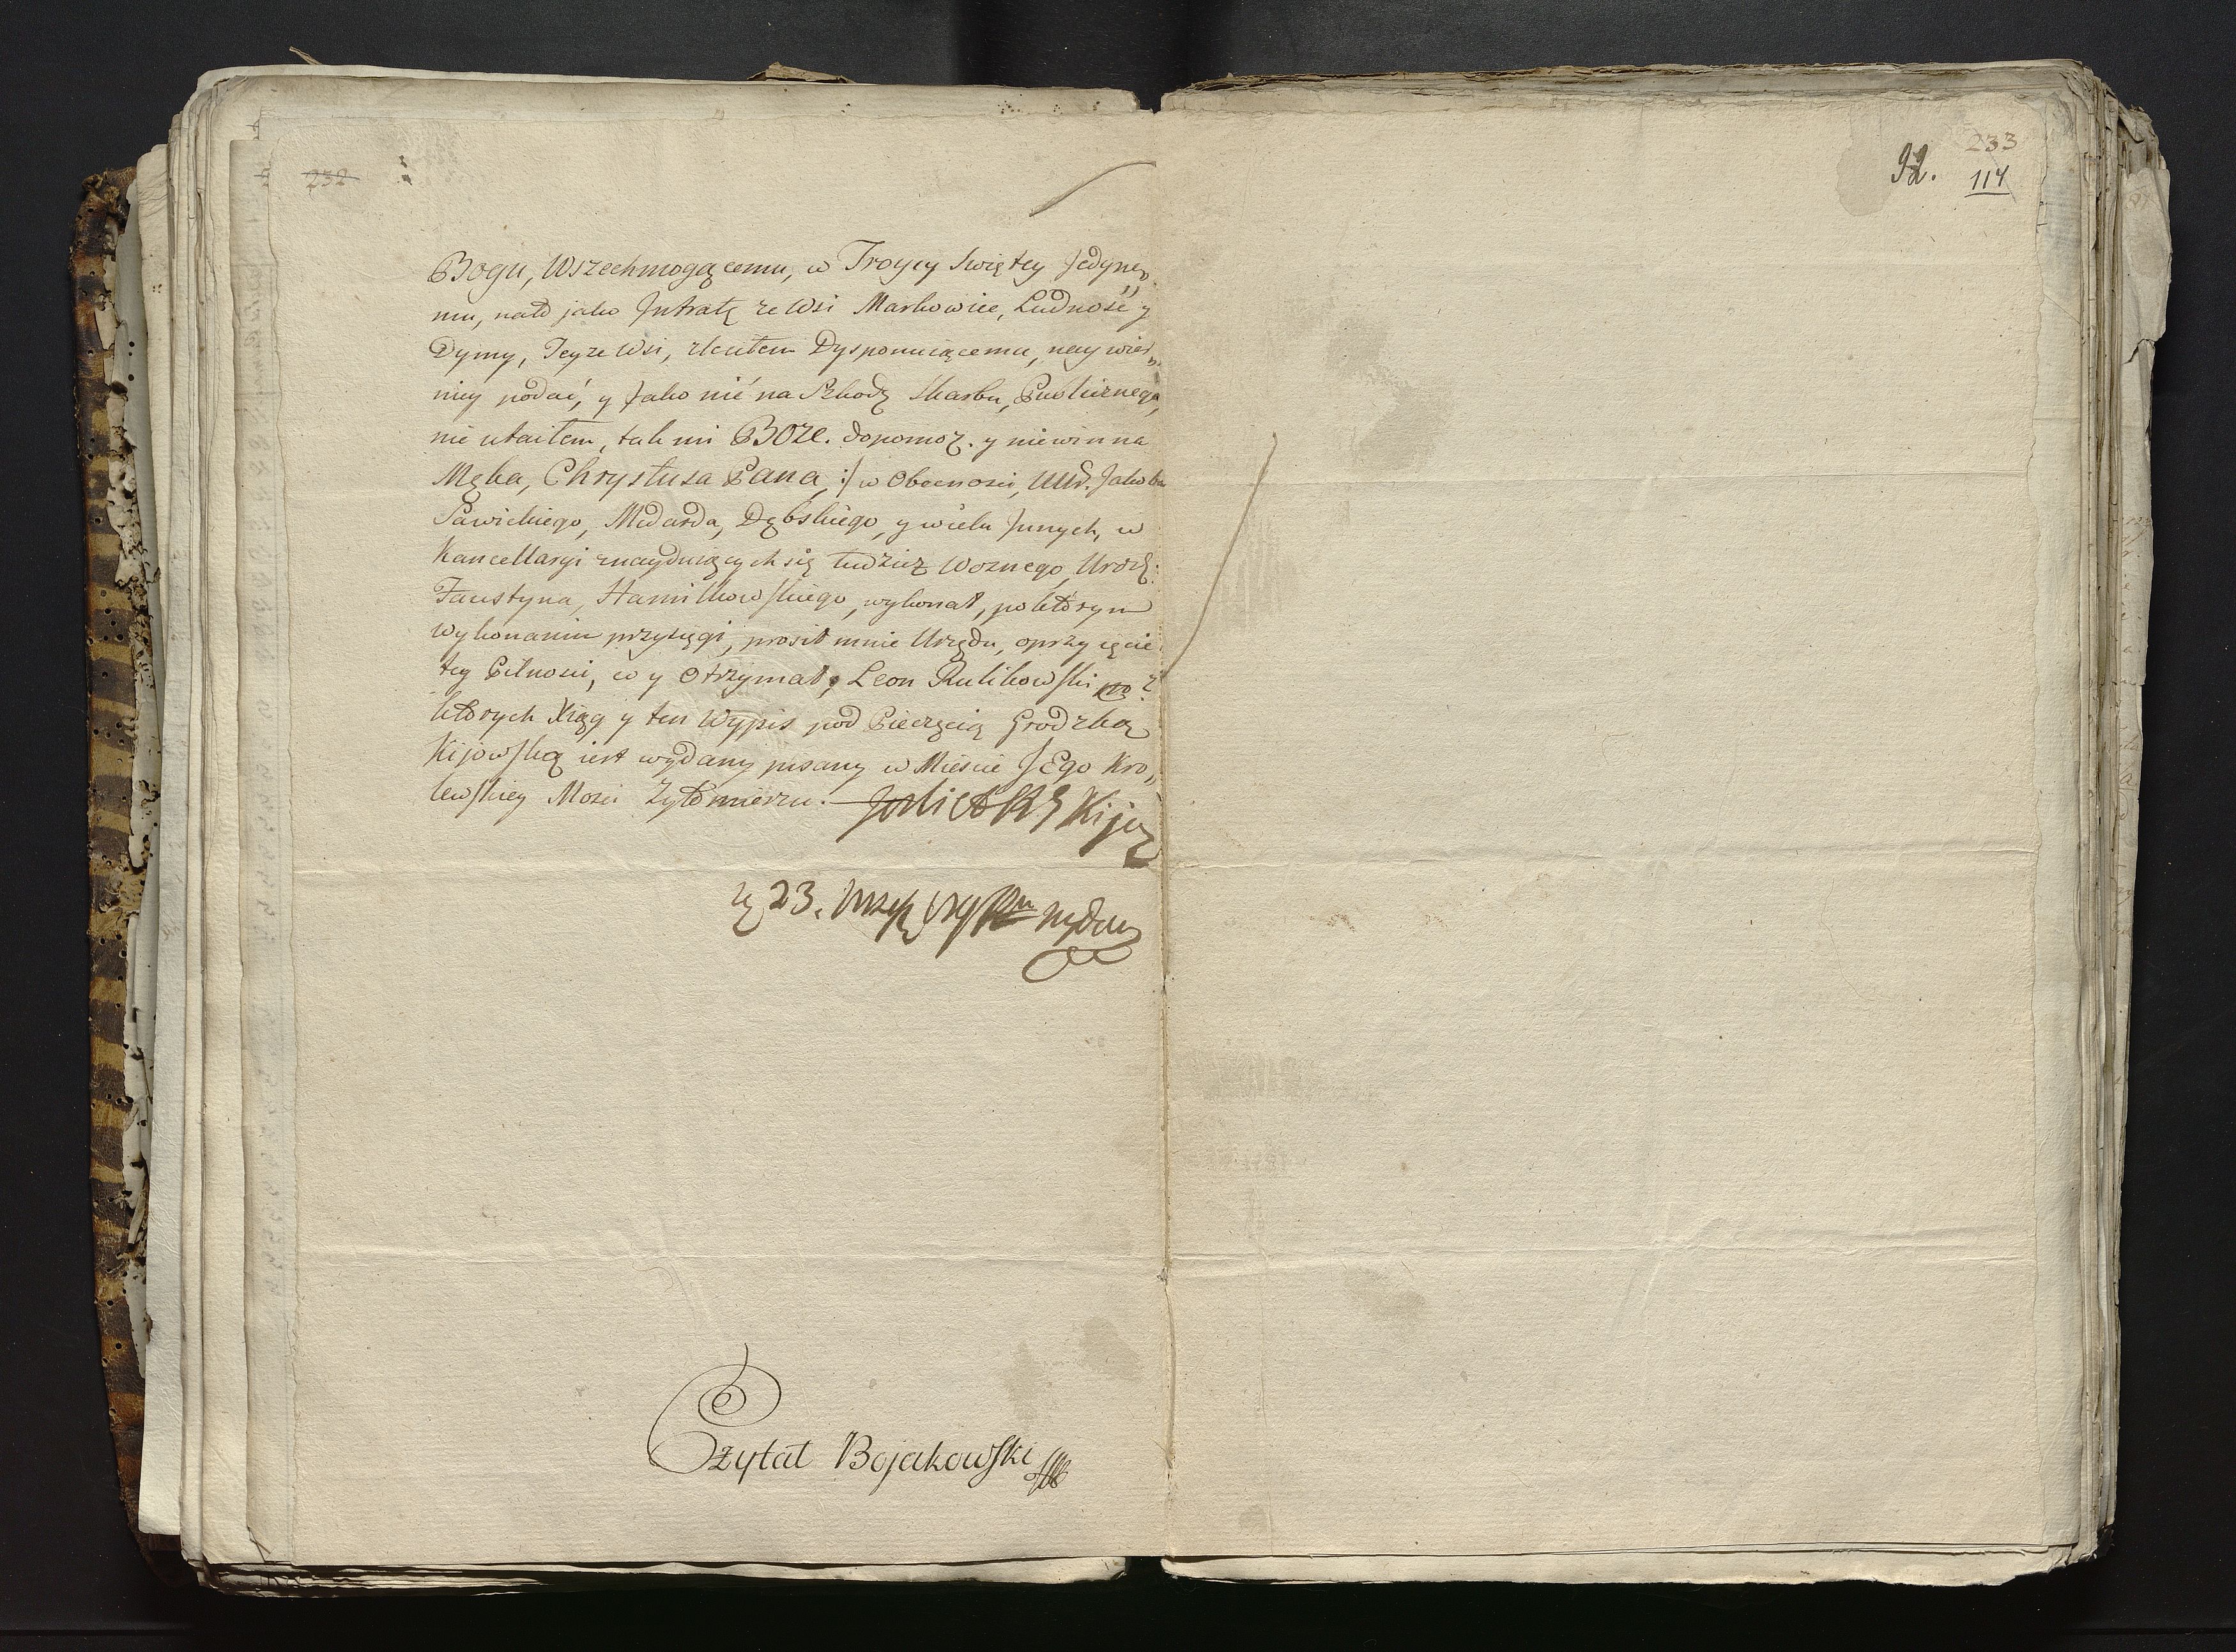 232
Bogu, Wszechmogącemu, w Troycy Swiętey Jedyne„
mu, nato jako Jntratę ze Wsi Markowice, Ludność y
Dymy, Teyze Wsi, Dysponuiącemu, naywier„
niey podać, y Jako nić na Szkodę Skarbu, Publicznego,
nie utaiłem, tak mi BOZE. dopomoz. y niewinna
Męka, Chrystusa Pana, :/ w Obecnosci, Jakoba
Sawickiego, Medarda, Dębskiego, y wielu Jnnych, w
Kancellaryi znayduiących się tudziez Woznego Urodz:
Faustyna, wykonał, po którym
Wykonaniu przysięgi, prosił mnie Urzędu, oprzyięcie
tey Pilnosci, co y Otrzymał, Leon Rulikowski z
których Xiąg y ten Wypis pod Pieczęcią Grodzką
Kijowską iest wydany pisany w Miescie JEgo Kro„
lewskiey Mosci Zytomierzu.
23.
Czytał Bojakowski
233
92.
114